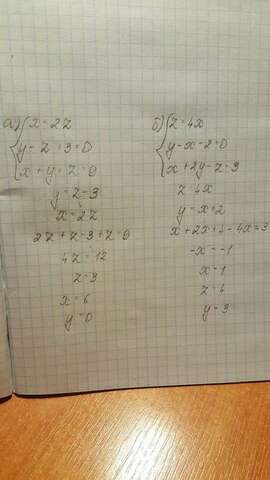 а) { x = 2z
y - z + 3 = 0
x + y + z = 9
y = z - 3
x = 2z
2z + z - 3 + z = 9
4z = 12
z = 3
x = 6
y = 0
б) { z = 4x
y - x - 2 = 0
x + 2y - z = 3
z = 4x
y = x + 2
x + 2x + 4 - 4x = 3
-x = -1
x = 1
y = 3